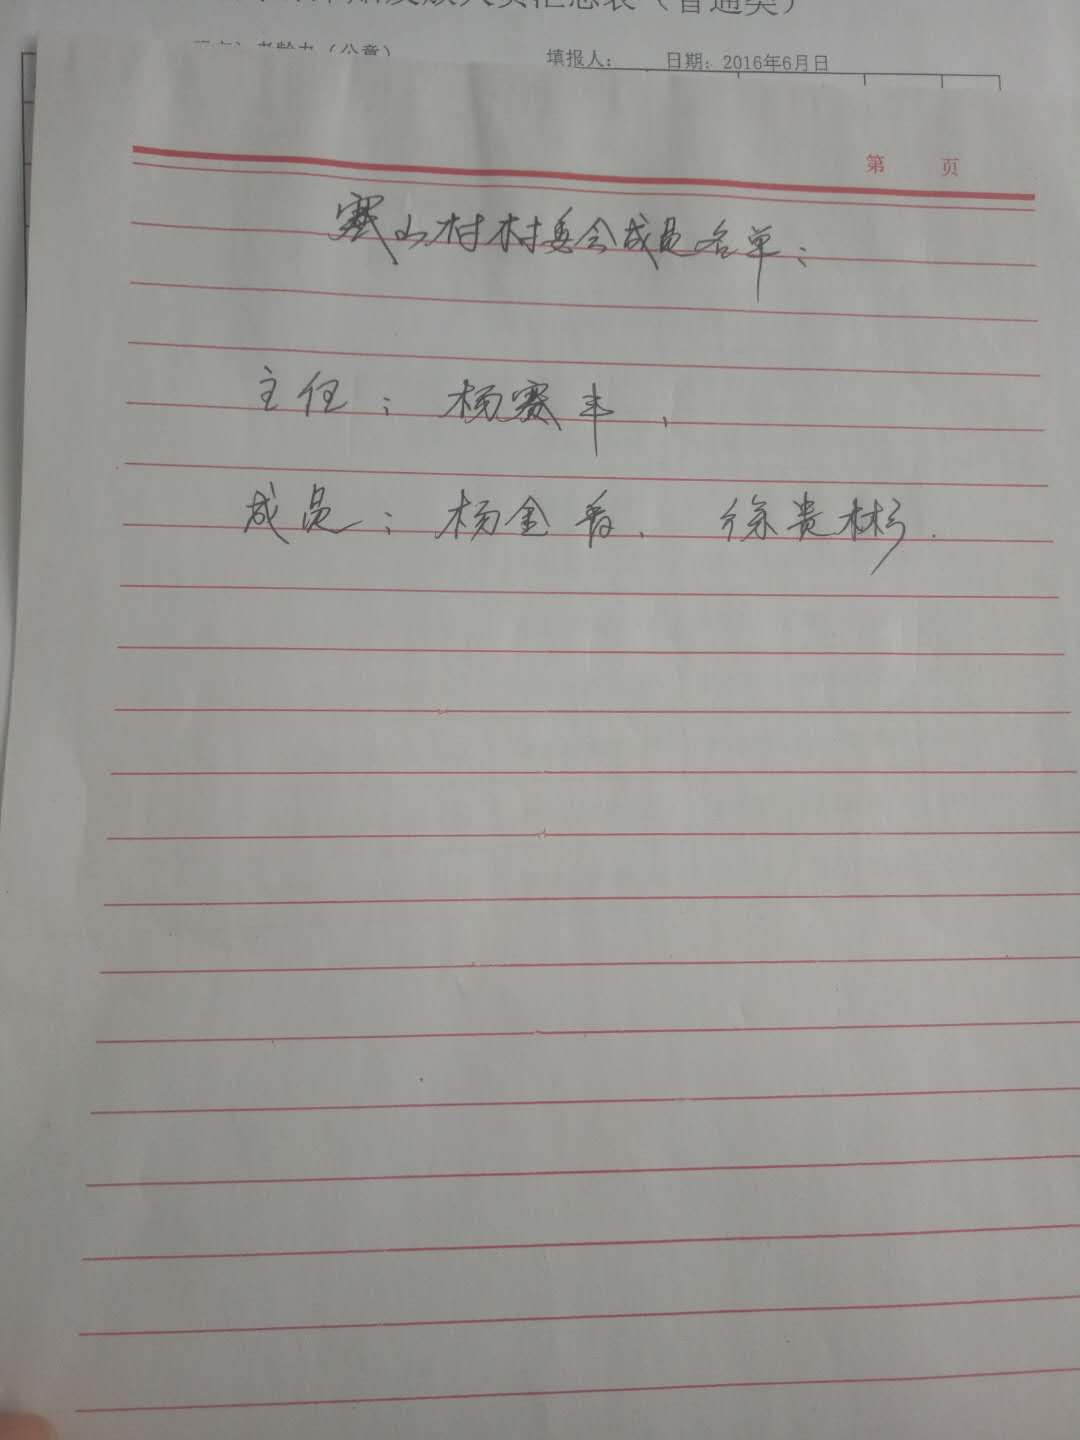 人员汇总表（普通类）
老龄办（公章） 填报人： 日期：2016年6月日
第 页
山村村委会成员名单：
主任：杨赛丰、
成员：杨金香、徐贵彬.